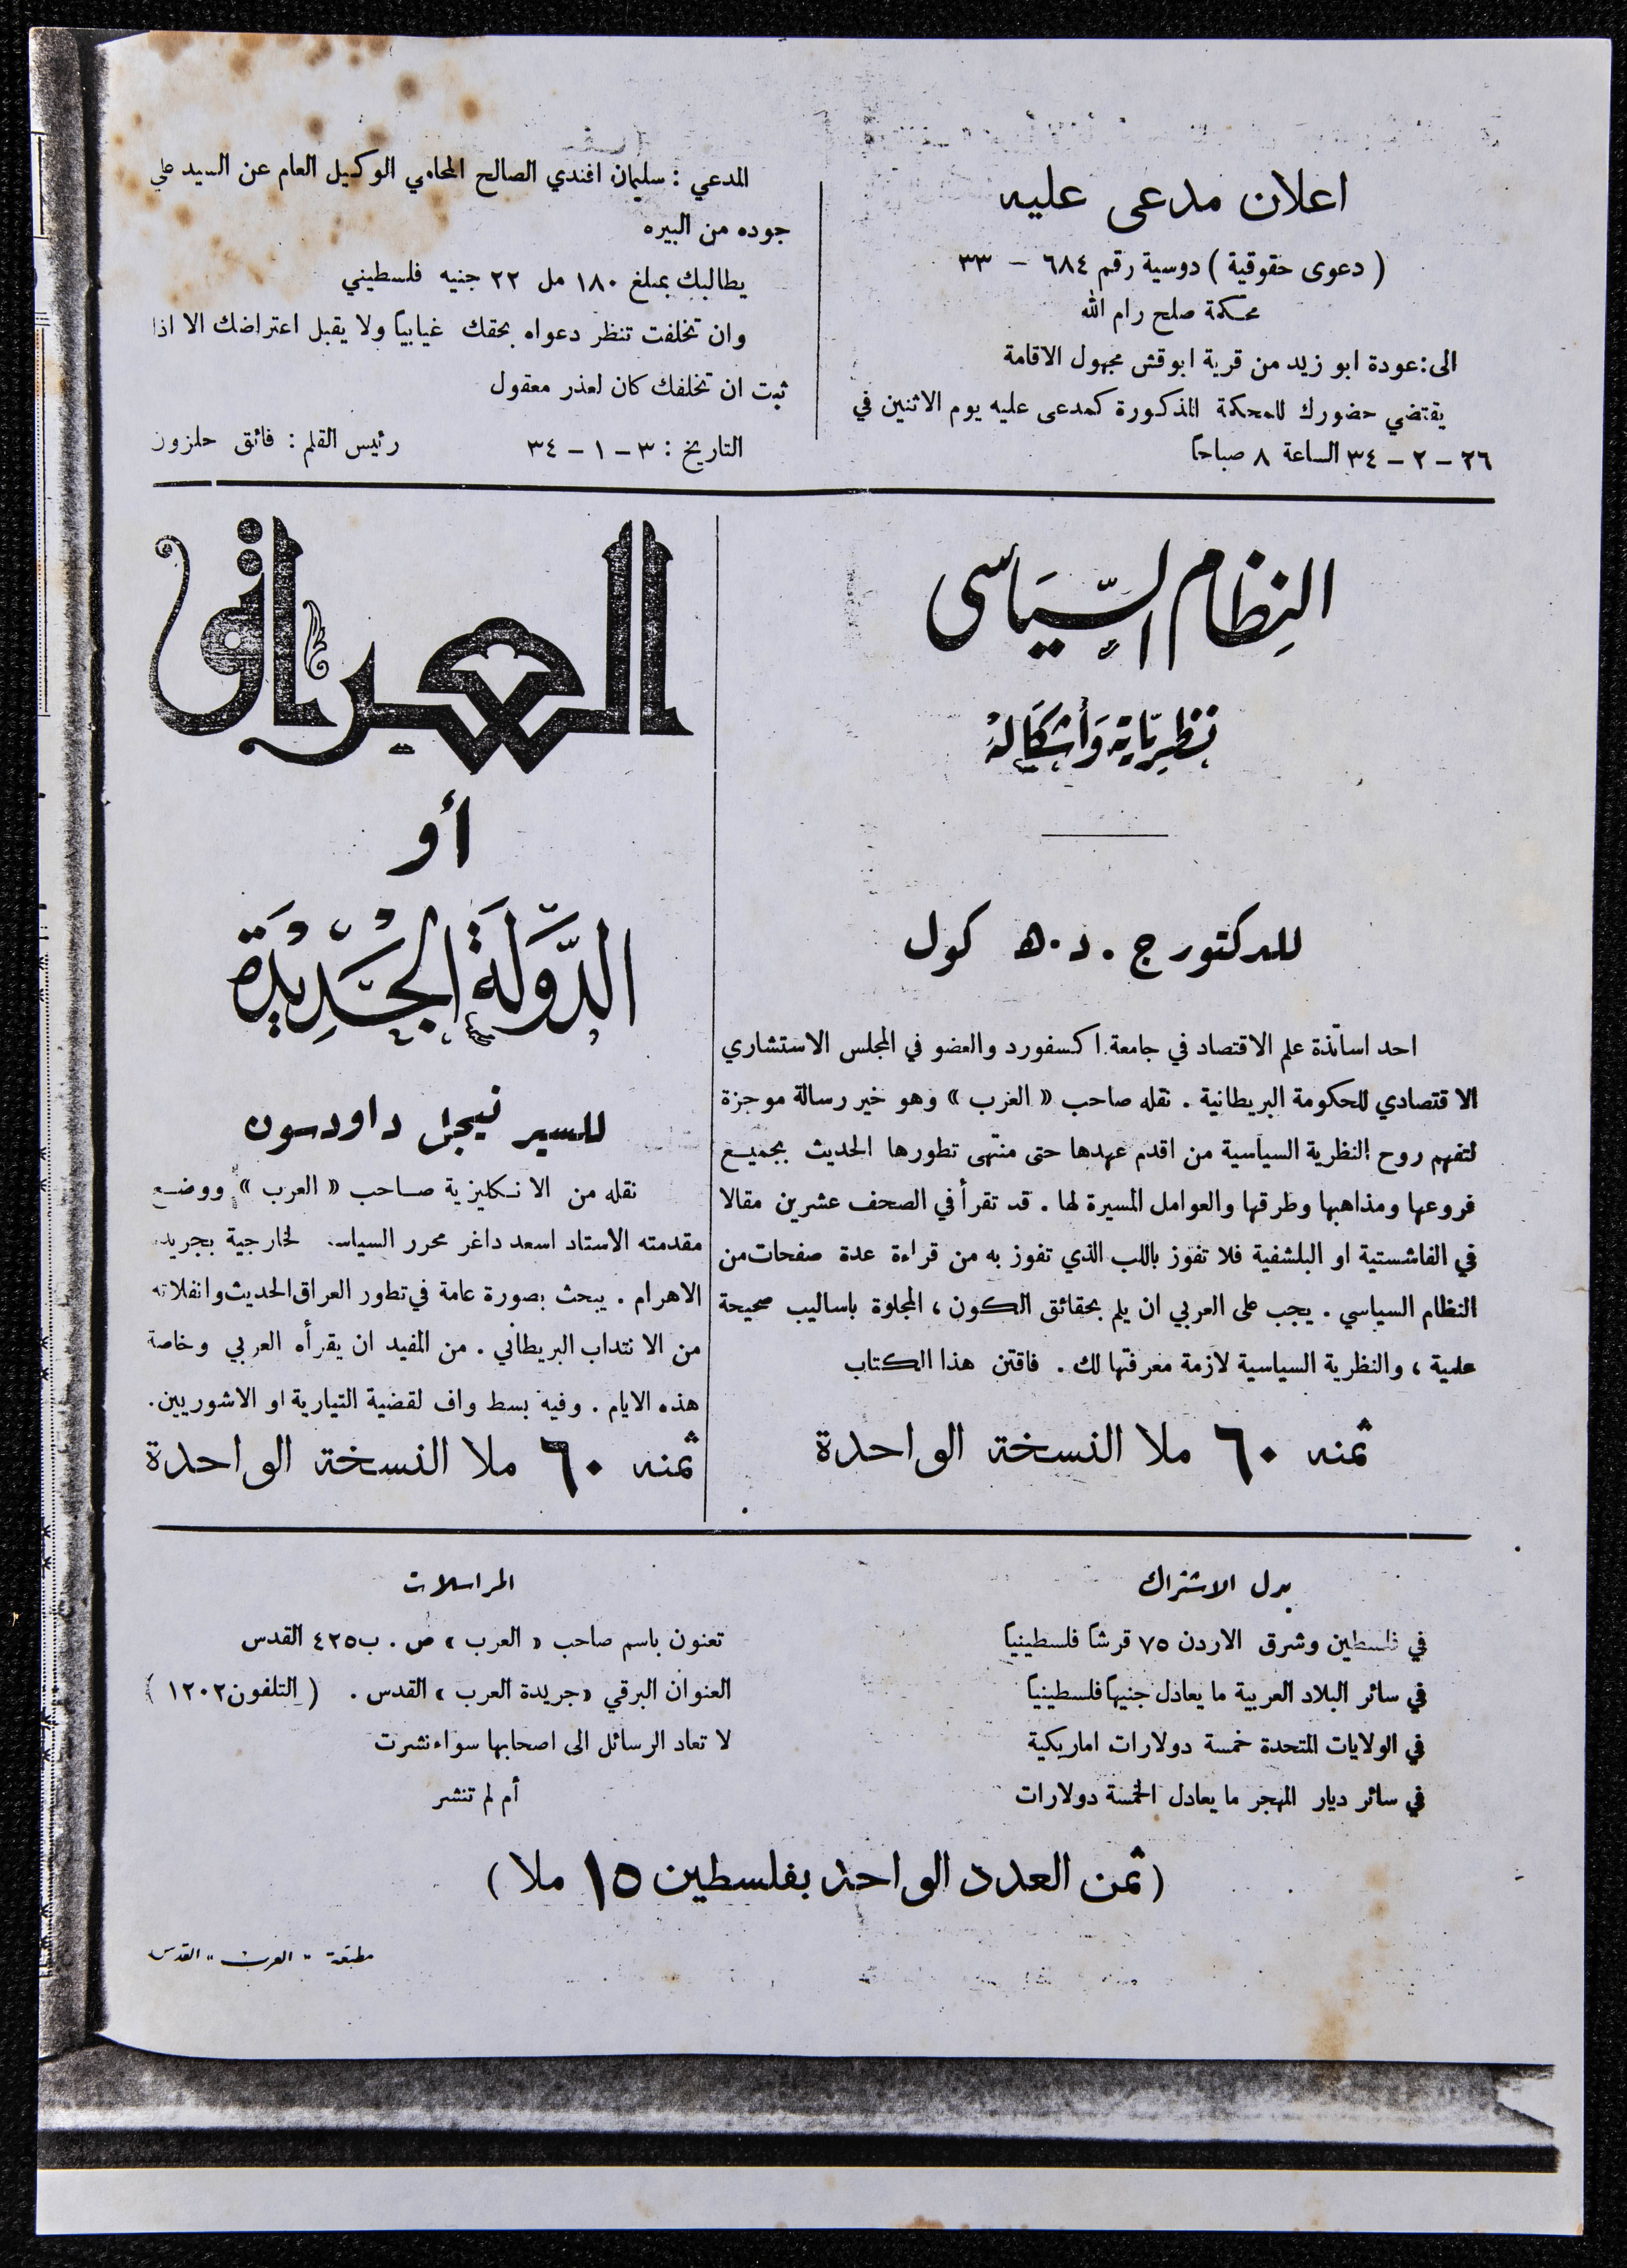 اعلان مدعى عليه
( دعوى حقوقية ) دوسية رقم ٦٨٤ – ٣٣
محكمة صلح رام الله
الى: عودة ابو زيد من قرية ابوقش مجهول الاقامة
يقتضي حضورك للمحكمة المذكورة كمدعى عليه يوم الاثنين في
٢٦ – ٢ – ٣٤ الساعة ٨ صباحاً
المدعي : سليمان افندي الصالح المحامي الوكيل العام عن السيد علي
جوده من البيره
يطالبك بمبلغ ١٨٠ مل ٢٢ جنيه فلسطيني
وان تخلفت تنظر دعواه بحقك غيابياً ولا يقبل اعتراضك الا اذا
ثبت ان تخلفك كان لعذر معقول
التاريخ : ٣ – ١ – ٣٤ رئيس القلم : فائق حلزون
النِظام السِّيَاسى
نظريّاته وَأشكَالهُ
للدكتور ج . د . ه كول
احد اساتذة علم الاقتصاد في جامعة اكسفورد والعضو في المجلس الاستشاري
الاقتصادي للحكومة البريطانية . نقله صاحب « العرب » وهو خير رسالة موجزة
لتفهم روح النظرية السياسية من اقدم عهدها حتى منتهى تطورها الحديث بجميع
فروعها ومذاهبها وطرقها والعوامل المسيرة لها . قد تقرأ في الصحف عشرين مقالا
في الفاشستية او البلشفية فلا تفوز باللب الذي تفوز به من قراءة عدة صفحات من
النظام السياسي . يجب على العربي ان يلم بحقائق الكون ، المجلوة باساليب صحيحة
علمية ، والنظرية السياسية لازمة معرفتها لك . فاقتن هذا الكتاب
ثمنه ٦٠ ملا النسخة الواحدة
العراق
أو
الدَّولَة الجَديْدَة
للسير نيجل داودسون
نقله من الانكليزية صاحب « العرب » ووضع
مقدمته الاستاد اسعد داغر محرر السياسـ لخارجية بجريد
الاهرام . يبحث بصورة عامة في تطور العراق الحديث وانفلاته
من الانتداب البريطاني . من المفيد ان يقرأه العربي وخاصة
هذه الايام . وفيه بسط واف لقضية التيارية او الاشوريين .
ثمنه ٦٠ ملا النسخة الواحدة
بدل الاشتراك
في فلسطين وشرق الاردن ٧٥ قرشاً فلسطينياً
في سائر البلاد العربية ما يعادل جنيهاً فلسطينياً
في الولايات المتحدة خمسة دولارات اماريكية
في سائر ديار المهجر ما يعادل الخمسة دولارات
المراسلات
تعنون باسم صاحب « العرب » ص . ب ٤٢٥ القدس
العنوان البرقي «جريدة العرب » القدس . ( التلفون ١٢٠٢ )
لا تعاد الرسائل الى اصحابها سواء نشرت
أم لم تنشر
( ثمن العدد الواحد بفلسطين ١٥ ملا )
مطبعة " العرب " القدس